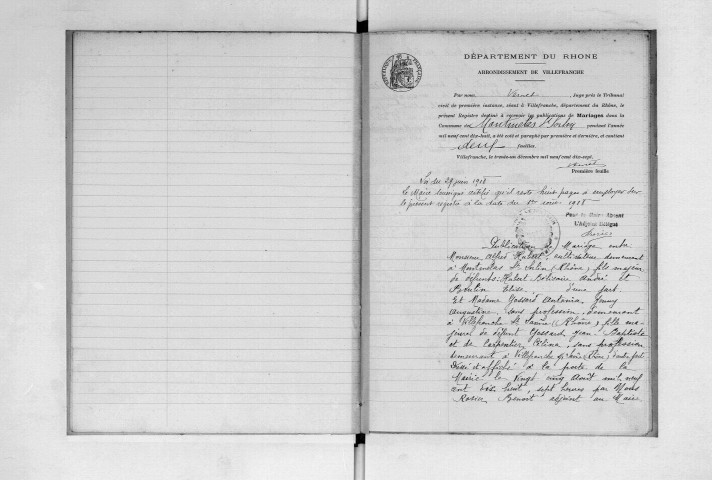 DÉPARTEMENT DU RHONE
ARRONDISSEMENT DE VILLEFRANCHE
Par nous, Vernet, Juge près le Tribunal
civil de première instance, séant à Villefranche, département du Rhône, le
présent Registre destiné à recevoir les publications de Mariages dans la
Commune de Montmelas St Sorlin pendant l'année
mil neuf cent dix-huit, a été coté et paraphé par première et dernière, et contient
neuf feuillets.
Villefranche, le trente-un décembre mil neuf cent dix-sept.
Première feuille
Loi du 29 juin 1918
Le Maire soussigné certifie qu'il reste huit pages à employer sur
le présent registre à la date du 1er 1918
Pour le Maire Absent
L'Adjoint Délégué
Publication de Mariage entre
Monsieur Alfred Hubert, cultivateur demeurant
à Montmelas St Sorlin (Rhône) fils majeur
de défunts Hubert André et
Elise d'une part
Et Madame Gossard Antonia Jenny
Augustine, sans profession, demeurant
à Villefranche St Saône (Rhône) fille ma-
jeure de défunt Gossard Jean Baptiste
et de Carpentier, sans profession
demeurant à Villefranche s/ Saône (Rhône) d'autre part
et affiché à la porte de la
Mairie le Vingt cinq Août mil neuf
cent dix huit, sept heures par Nous
Benoit adjoint au Maire